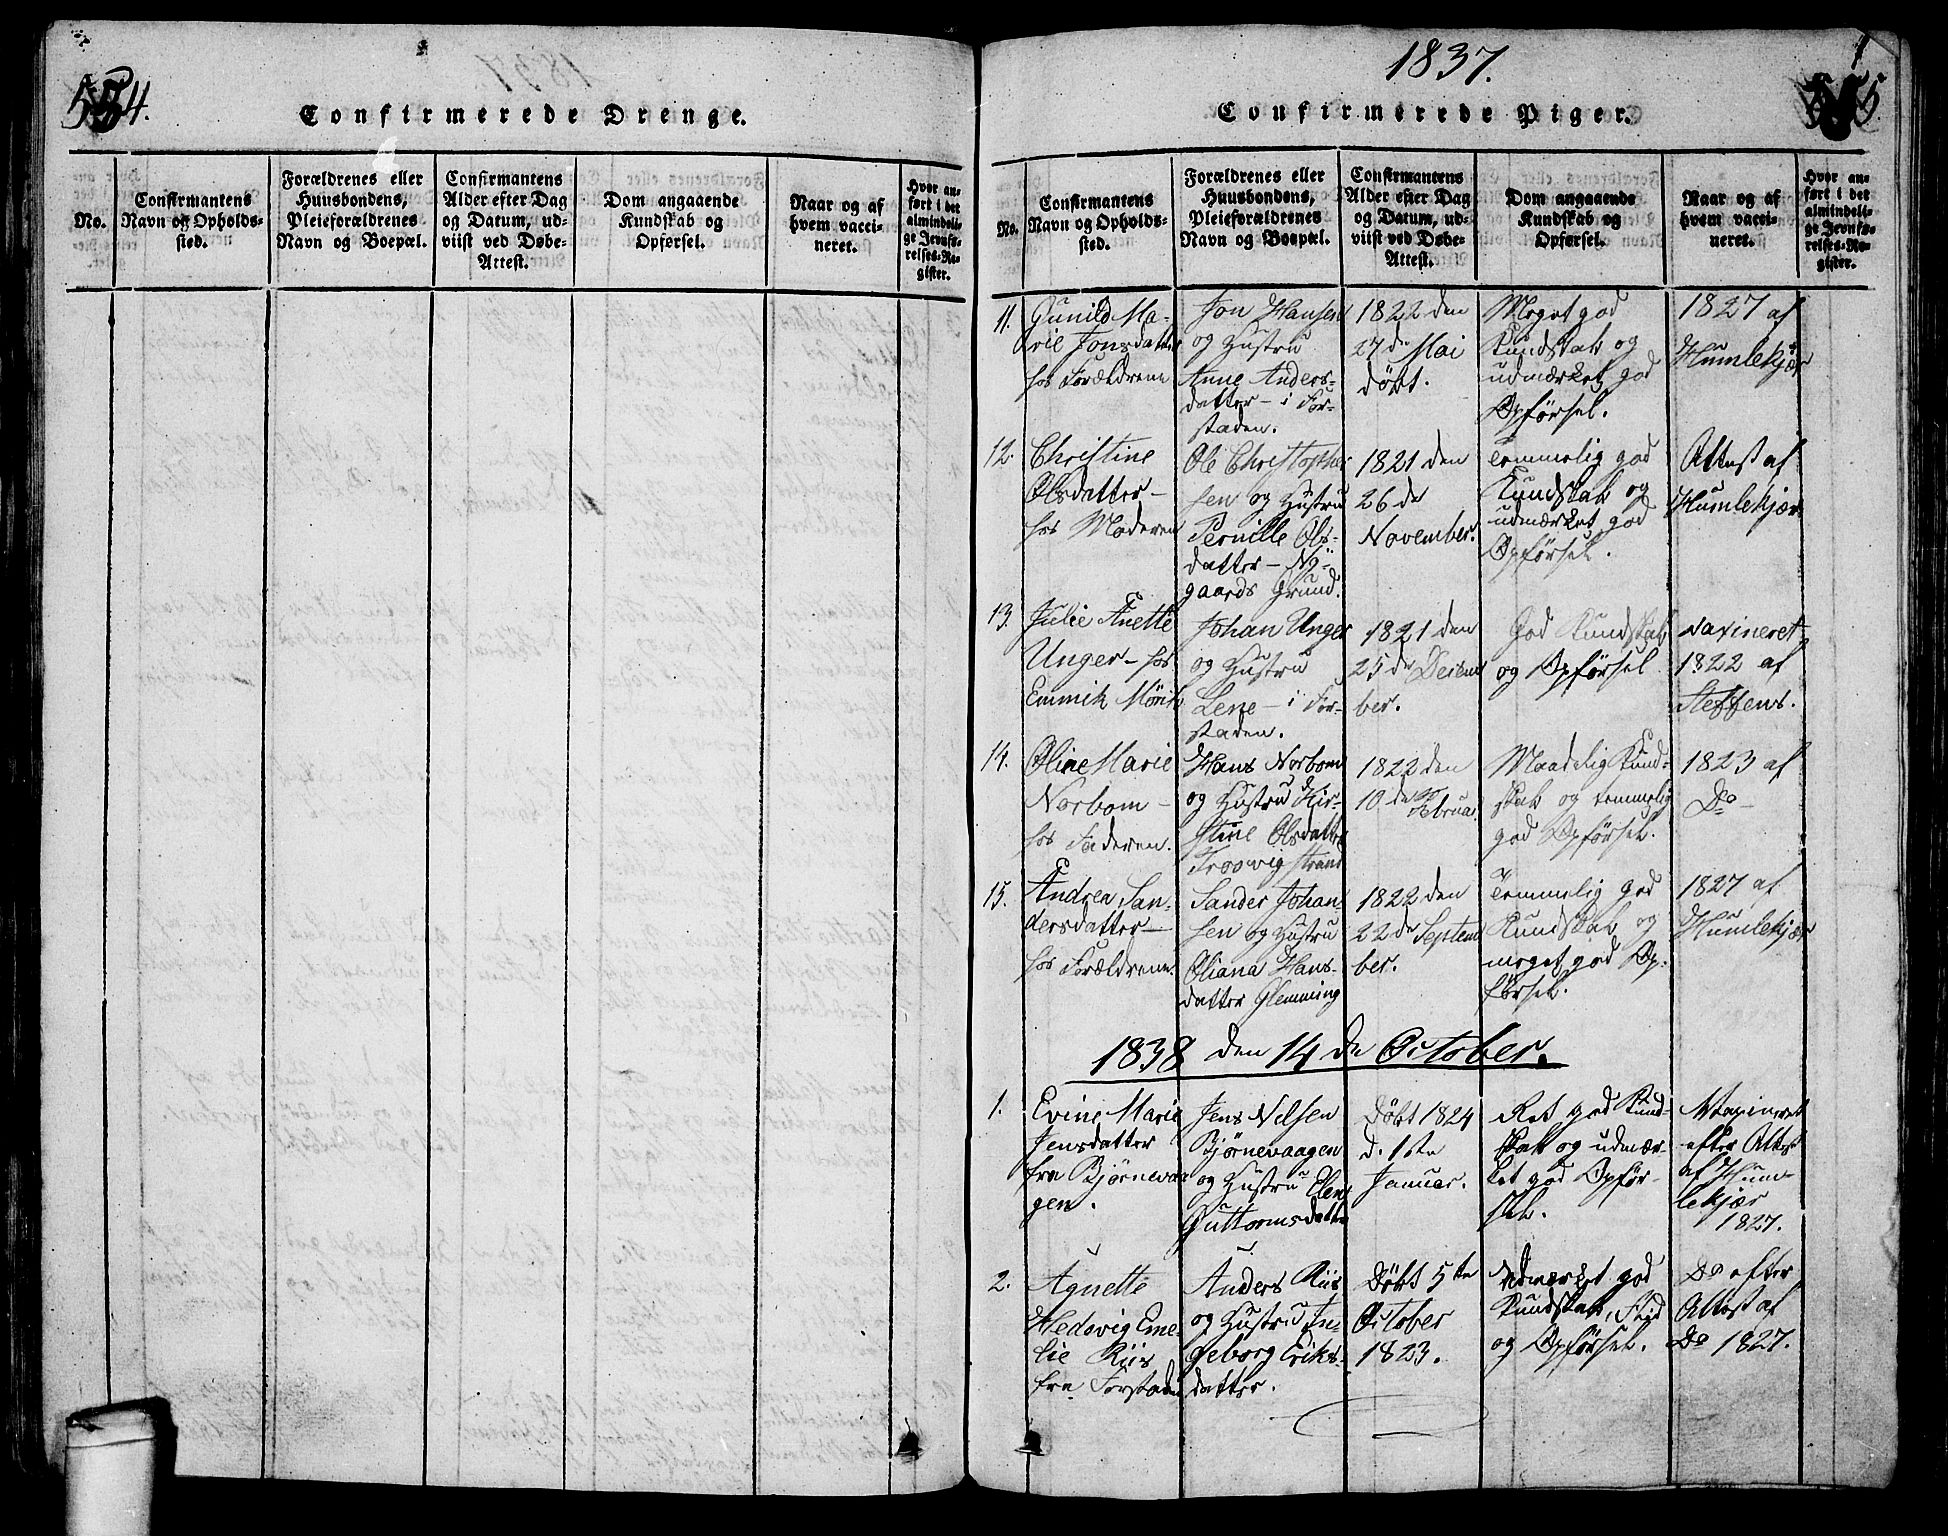 554.
Confirmerede Drenge.
No.
Confirmantens
Navn og Opholds-
sted.
Forældrenes eller
Huusbondens,
Pleieforældrenes
Navn og Boepæl.
Confirmantens
Alder efter Dag
og Datum, ud-
viist ved Døbe-
Attest.
Dom angaaende
Kundskab og
Opførsel.
Naar og af
hvem vacci-
neret.
Hvor an-
ført i det
almindeli-
ge Jevnfø-
relses-Re-
gister.
1837.
Confirmerede Piger.
No.
Confirmantens
Navn og Opholds-
sted.
Forældrenes eller
Huusbondens,
Pleieforældrenes
Navn og Boepæl.
Confirmantens
Alder efter Dag
og Datum, ud-
viist ved Døbe-
Attest.
Dom angaaende
Kundskab og
Opførsel.
Naar og af
hvem vacci-
neret.
Hvor an-
ført i det
almindeli-
ge Jevnfø-
relses-Re-
gister.
11.
Gunild Ma-
rie Jonsdatter
hos Forældrene
Jon Hansen
og Hustru
Anne Anders-
datter - i For-
staden.
1822 den
27de Mai
døbt.
Meget god
Kundskab og
udmærket god
Opførsel.
1827 af
Humlekjær
12.
Christine
Olsdatter -
hos Moderen
Ole Christopher
sen og Hustru
Pernille Ols-
datter - Ny-
gaards Grund.
1821 den
26de
November.
Temmelig god
Kundskab og
udmærket god
Opførsel.
Attest af
Humlekjær
13.
Julie Anette
Unger - hos
Emmik
Johan Unger
og Hustru
Lene - i For-
staden.
1821 den
25de Decem
ber.
God Kundskab
og Opførsel
Vaxineret
1822 af
Steffens.
14.
Oline Marie
Norbom -
hos Faderen.
Hans Norbom
og Hustru Kir-
stine Olsdatter
1822 den
10de Februar
Maadelig Kund-
skab og temmelig
god Opførsel.
1823 af
Do -
15.
Andrea San-
dersdatter -
hos Forældrene.
Sander Johan-
sen og Hustru
Oliana Hans-
datter Glemming
1822 den
22de Septem
ber.
Temmelig god
Kundskab og
meget god Op-
førsel.
1827 af
Humlekjær
1838 den 14de October.
1.
Evine Marie
Jensdatter
fra Bjørnevaa
gen.
Jens Nilsen
Bjørnevaagen
og Hustru Elen
Guttormsdatter
Døbt 1824
d. 1ste
Januar.
Ret god Kund-
skab og udmær-
ket god Opfør-
sel.
Vaxineret
efter Attest
af Hum-
lekjær
1827.
2.
Agnette
Hedevig Eme-
lie Riis
fra Forstaden
Anders Riis
og Hustru In-
geborg Eriks-
datter.
Døbt 5te
October
1823.
Udmærket god
Kundskab, Flid
og Opførsel.
Do efter
Attest af
Do 1827.